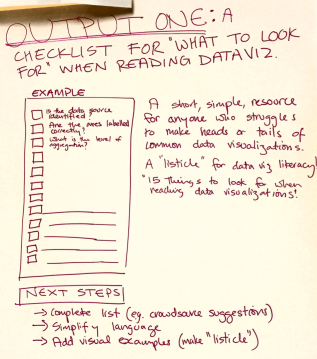 OUTPUT ONE: A
CHECKLIST FOR "WHAT TO LOOK
FOR" WHEN READING DATAVIZ.
EXAMPLE
Is the data source
identified?
Are the axes labelled
correctly?
What is the level of
aggregation?
A short, simple, resource
for anyone who struggles
to make heads or tails of
common data visualizations.
A "listicle" for data viz literacy!
"15 Things to look for when
reading data visualizations!
NEXT STEPS
→ Complete list (eg. crowdsource suggestions)
→ Simplify language
→ Add visual examples (make "listicle")